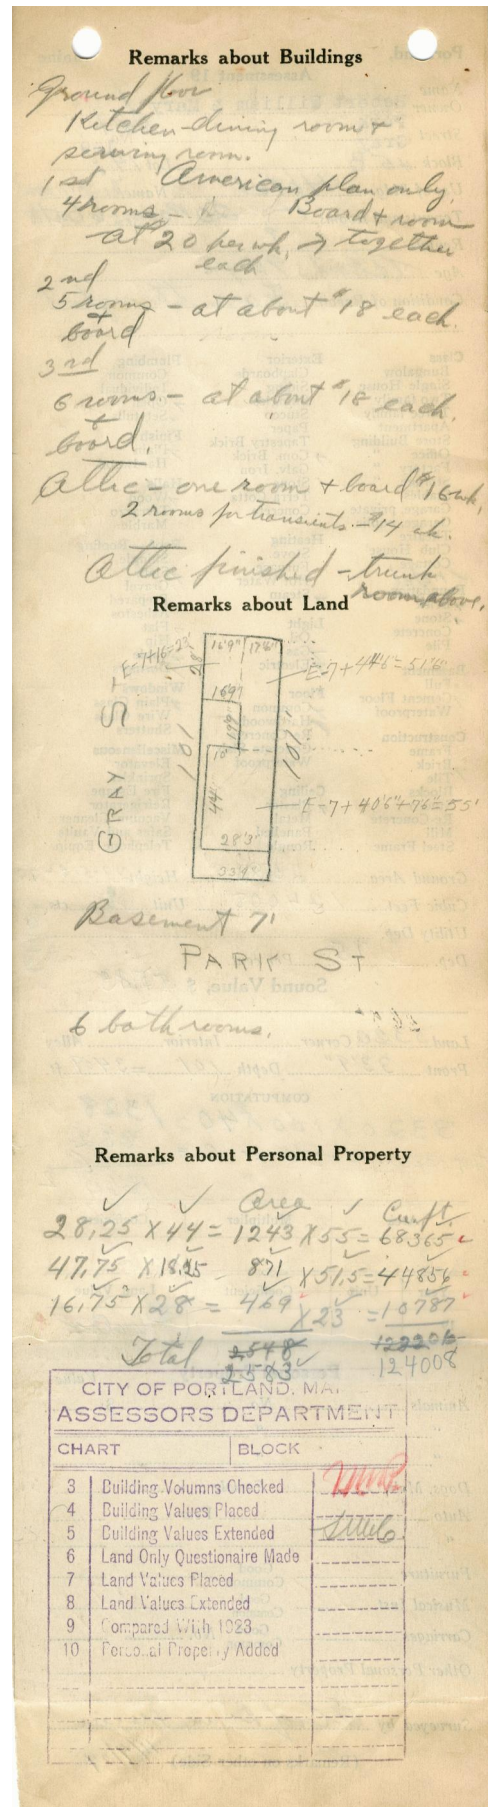 Remarks about Buildings
Ground floor
Kitchen-dining room +
serving room.
1st American plan only,
4 rooms - Board + room
at $20 per wk, → together
each
2nd
5 rooms - at about $18 each.
+
board
3rd
6 rooms - at about $18 each.
+
board.
Attic - one room + board $16 wk,
2 rooms for transients - $14
Attic finished - trunk
room above.
Remarks about Land
E-7+16=23'
16'9" 17'6"
28
E-7+44'6"=51'6"
GRAY ST
101
101'
10'
44'
E-7+40'6"+7'6=55'
28'3"
33'9"
Basement 7'
PARK ST
6 bathrooms.
Remarks about Personal Property
Area Cu. ft.
28.25 X 44 = 1243 X 55 = 68365
47.75 X 18.25 871 X 51.5 = 44856
16.75 X 28 = 469 X 23 = 10787
Total 2548 122206
2583 124008
CITY OF PORTLAND, ME.
ASSESSORS DEPARTMENT
CHART BLOCK
3 Building Volumns Checked
4 Building Values Placed
5 Building Values Extended
6 Land Only Questionaire Made
7 Land Values Placed
8 Land Values Extended
9 Compared With 1923
10 Personal Property Added